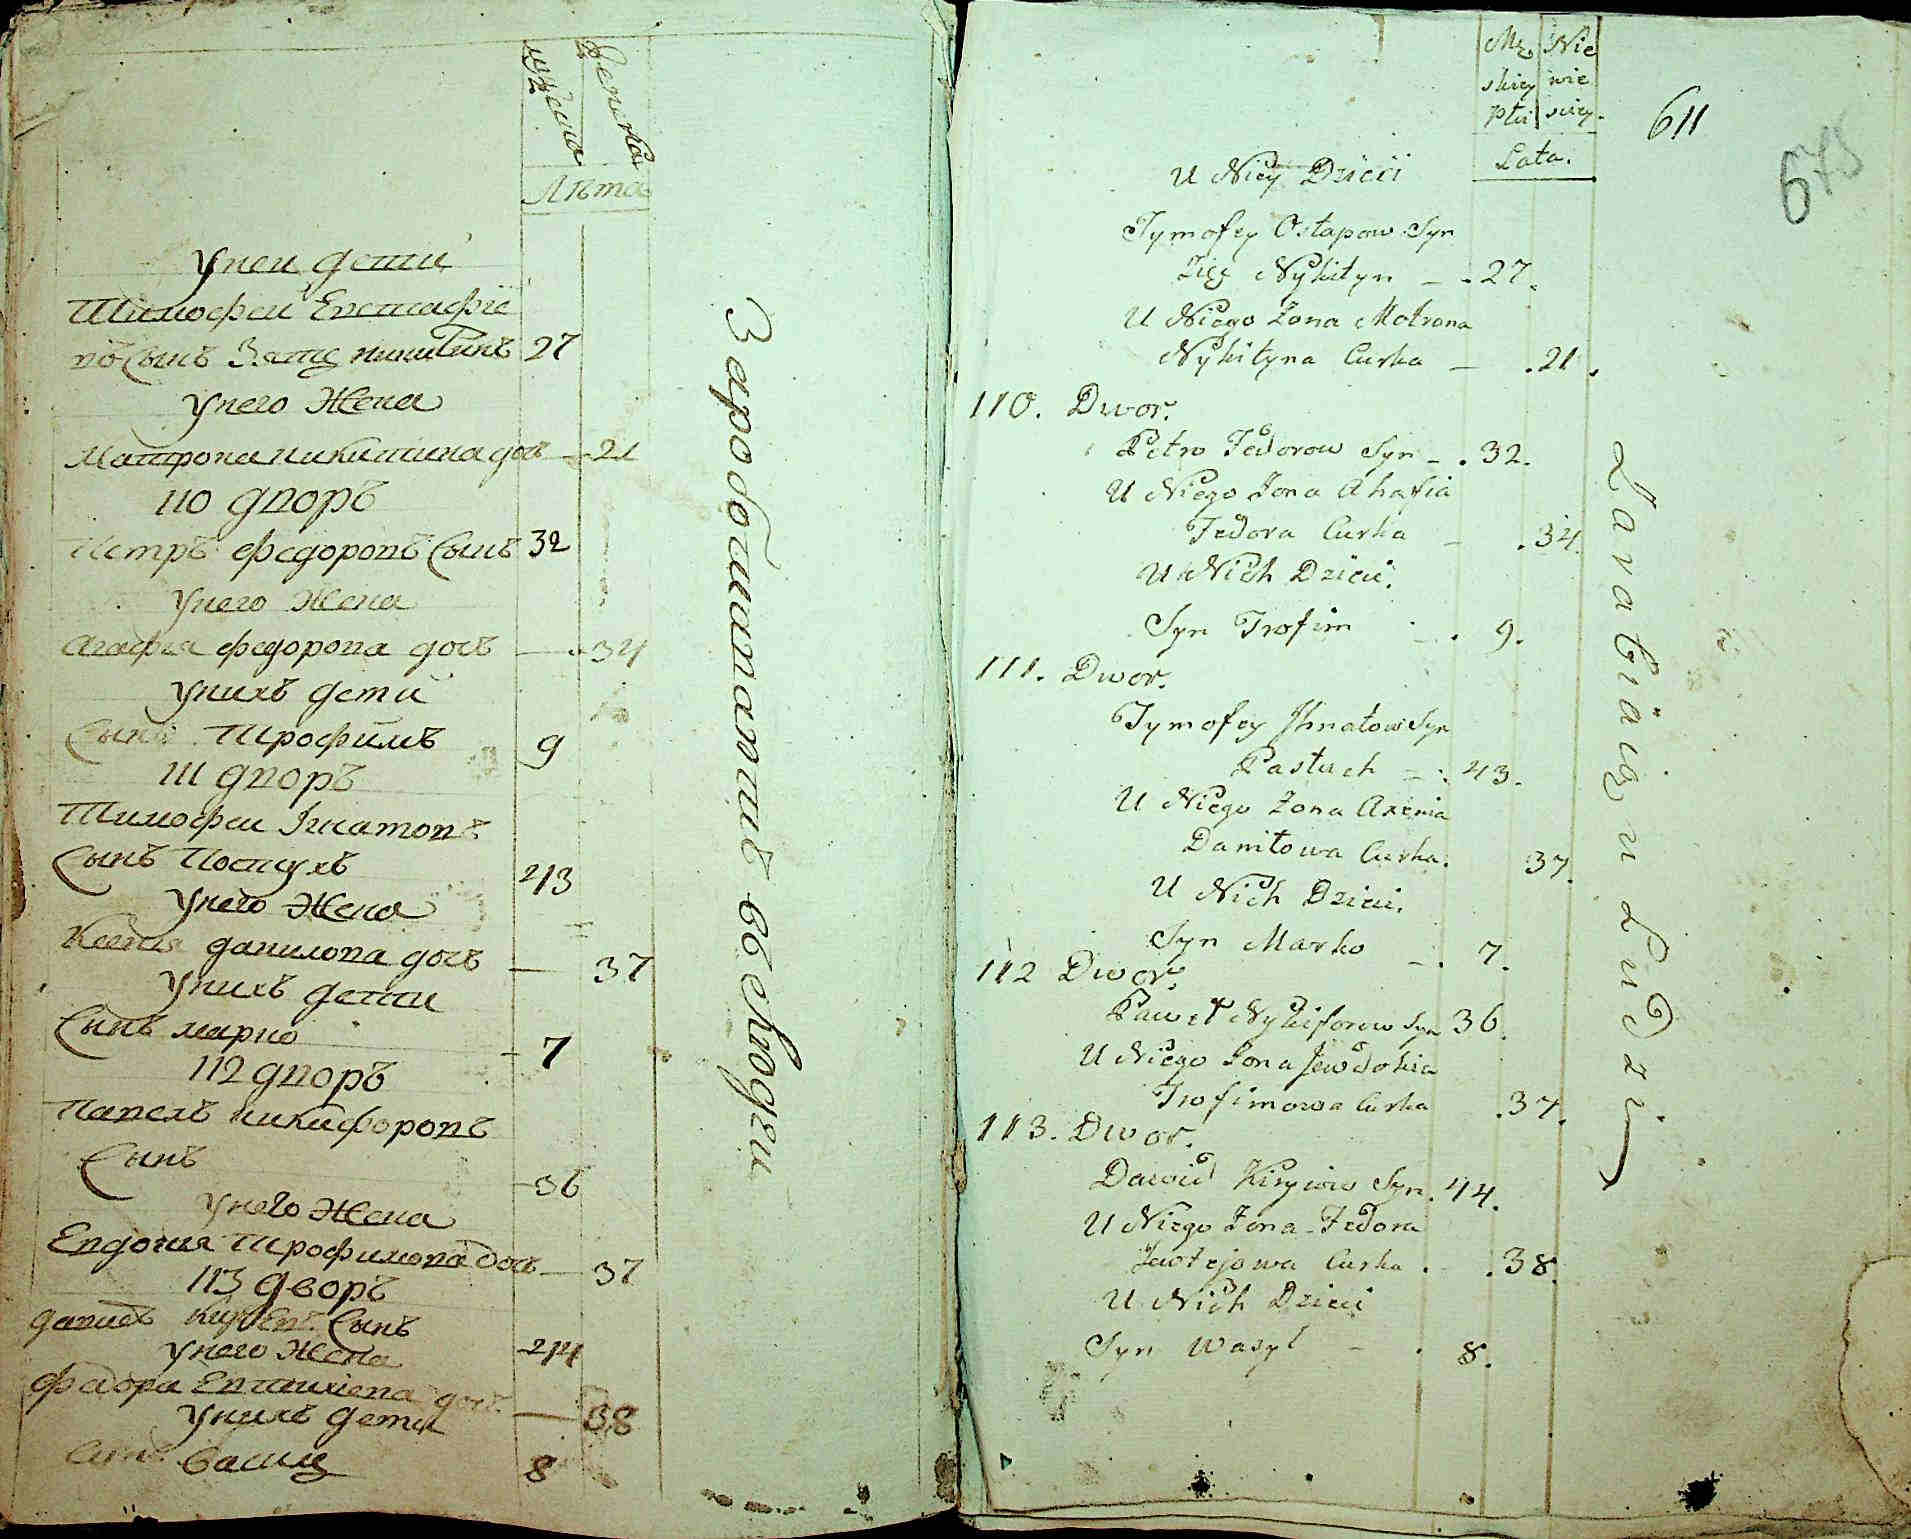 мужеска
женска
Лѣта
У неи дети
Тимофеи Евстафіе
въ сынъ Зять никитинъ 27
У него Жена
Матрона никитина дочь — 21
110 дворъ
Петръ федоровъ сынъ 32
У него Жена
Агафия федорова дочь — 34
У нихъ дети
Сынъ Трофимъ 9
111 дворъ
Тимофеи Ігнатовъ
Сынъ Пастухъ 43
У него Жена
Ксения данилова дочь — 37
У нихъ дети
Сынъ марко - 7
112 дворъ
Павелъ никифоровъ
Сынъ - 36
У него Жена
Евдокия Трофимова дочь — 37
113 дворъ
давидъ Сынъ
У него Жена 44
Федора дочь — 38
У нихъ дети
Сынъ Василь 8
Mę Nie
skiey wie
Płci sciey.
Lata.
611
675
U Niey Dzieci
Tymofey Ostapow Syn
Zięć Nykityn — . 27.
U Niego Zona Motrona
Nykityna Curka — . 21.
110. Dwor.
Petro Fedorow Syn — . 32.
U Niego Zona Ahafia
Fedora Curka — . 34.
U Nich Dzieci.
Syn Trofim — . 9.
111. Dwor.
Tymofey Ihnatow Syn
Pastuch — . 43.
U Niego Zona Axenia
Daniłowa Curka. 37.
U Nich Dzieci.
Syn Marko — . 7.
112 Dwor.
Paweł Nykiforow Syn 36.
U Niego Zona Jewdokia
Trofimowa Curka . 37.
113. Dwor.
Dawid Syn. 44.
U Niego Zona Fedora
Curka . . 38.
U Nich Dzieci
Syn Wasyl — . 8.
Zarabiaią u Ludzi